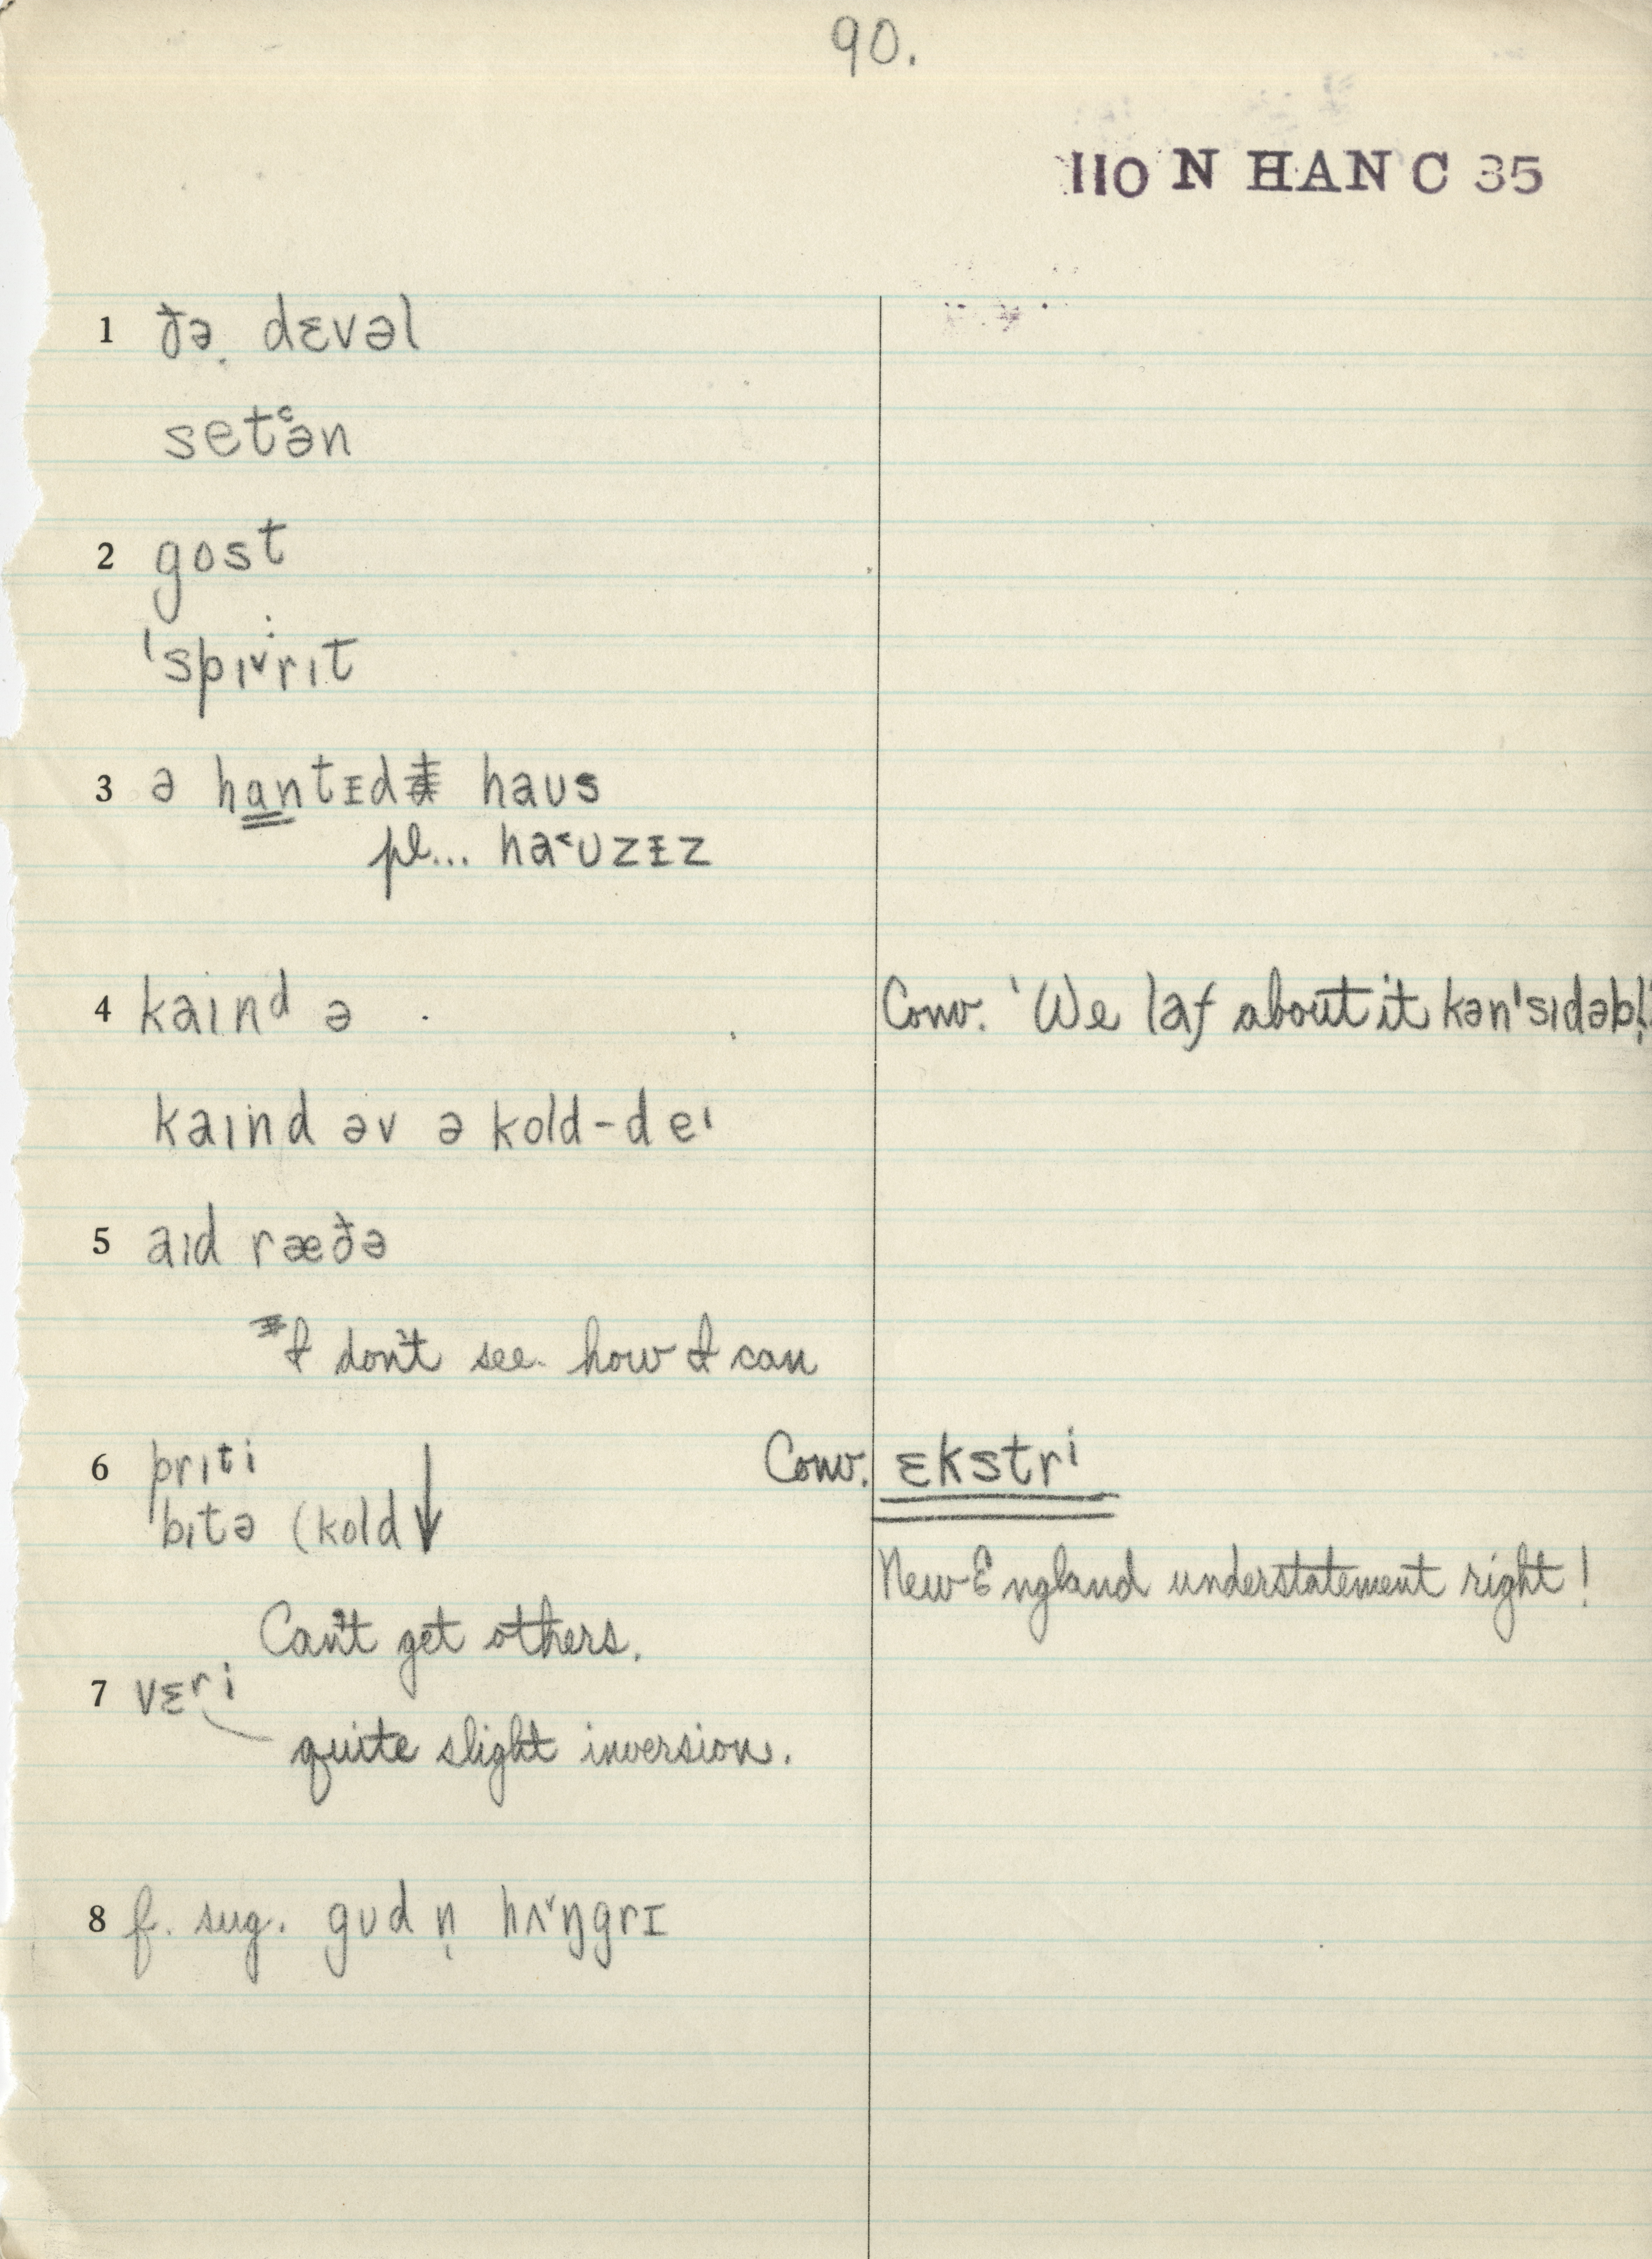 90.
110 N HAN C 35
1 ðə dɛvəl
setʿən
2 gost
ˈspɪ˅rɪt
3 ə hantɪd haus
pl... ha˂ʊzɪz
4 kaɪnd ə
Conv. 'We laf about it kən'sɪdəbl̩'
kaɪnd əv ə kold-deɪ
5 aɪd ræðə
I don't see how I can
6 prɪti
Conv. ɛkstri
bɪtə (kold ↓
New England understatement right!
Can't get others.
7 vɛri
quite slight inversion.
8 f. sug. gʊd n̩ hʌ˅ŋgrɪ